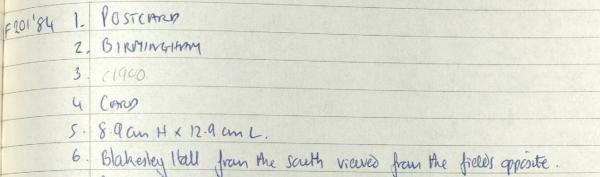 F201'84 1. POSTCARD
2. BIRMINGHAM
3. C1900
4 CARD
5. 8.9cm H x 12.9 cm L.
6. Blakesley Hall from the south viewed from the fields opposite.